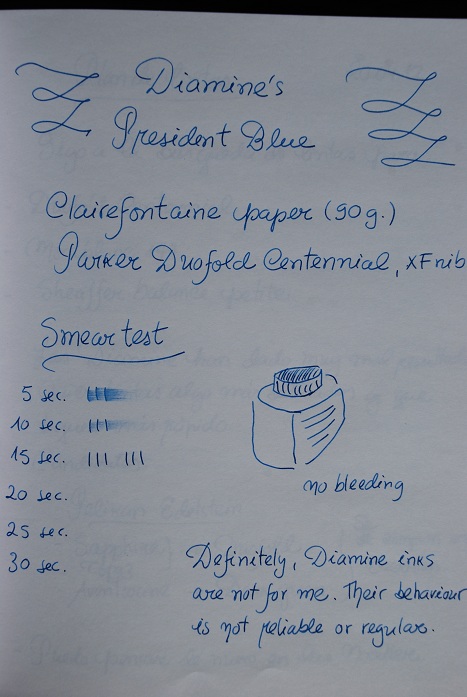 Diamine's
President Blue
Clairefontaine paper (90g.)
Parker Duofold Centennial, XF nib
Smear test
5 sec.
10 sec.
15 sec.
20 sec.
25 sec.
30 sec.
no bleeding
Definitely, Diamine inks
are not for me. Their behaviour
is not reliable or regular.